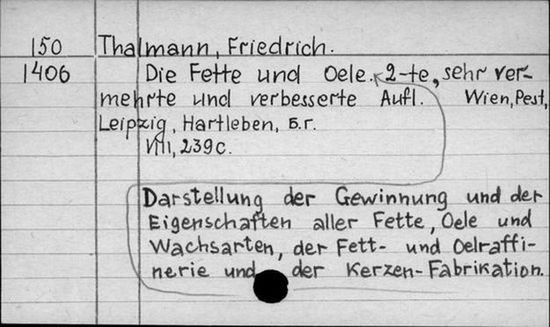 150 Thalmann, Friedrich.
1406 Die Fette und Oele. 2-te, sehr ver-
mehrte und verbesserte Aufl. Wien, Pest,
Leipzig, Hartleben, б.г.
VIII, 239 с.
Darstellung der Gewinnung und der
Eigenschaften aller Fette, Oele und
Wachsarten, der Fett- und Oelraffi-
nerie und der Kerzen-Fabrikation.